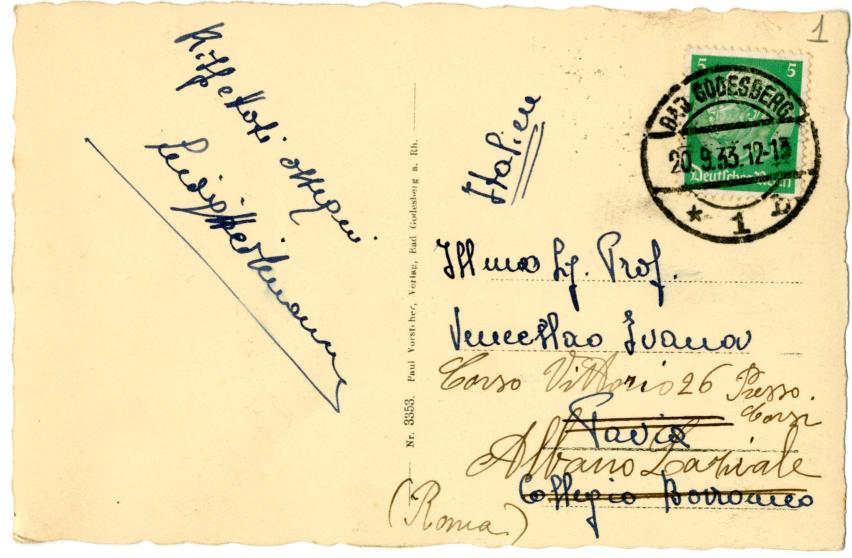 1
Rispettosi ossequi
5 5
BAD GODESBERG
20.9.33.12-13
Deutsches Reich
* 1 b
Italien
Illmo Sig. Prof.
Venceslao Ivanov
Corso Vittorio 26 Presso
Corzi
Pavia
Albano Laziale
Collegio Borromeo
(Roma)
Nr. 3353. Paul Vorsteher, Verlag, Bad Godesberg a. Rh.